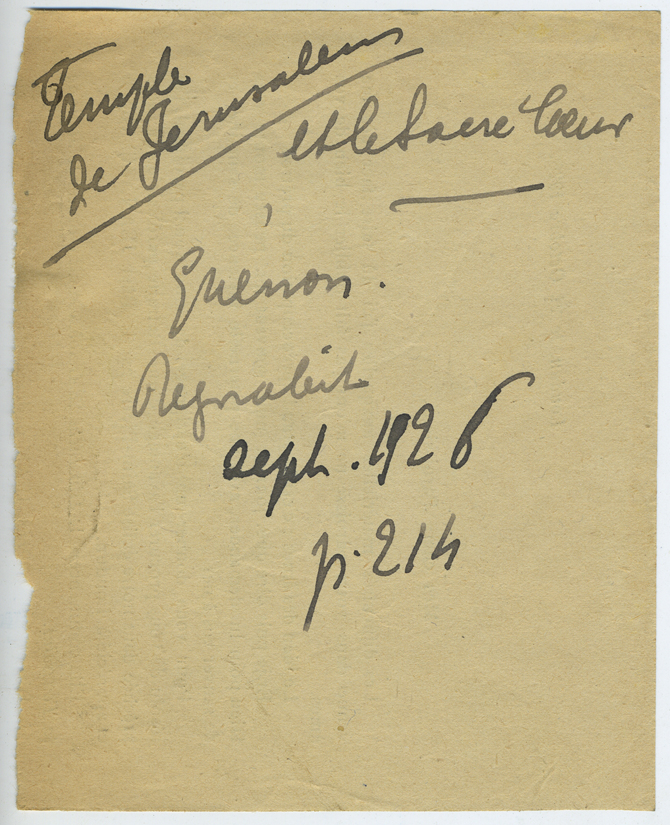 Temple
de Jerusalem
et le Sacré Cœur
Guénon.
Regnabit
sept. 1926
p. 214